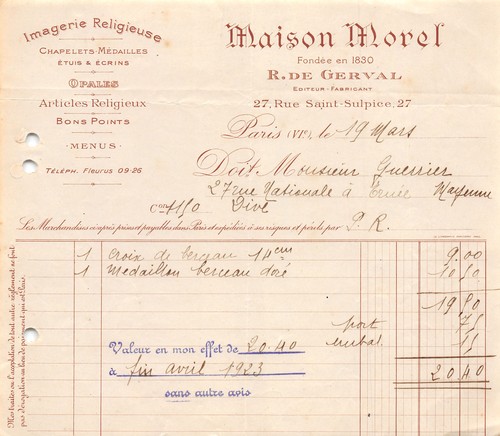 Imagerie Religieuse
Chapelets-Médailles
Étuis & Écrins
Opales
Articles Religieux
Bons Points
- Menus -
Téléph. Fleurus 09-26
Maison Morel
Fondée en 1830
R. de Gerval
Editeur-Fabricant
27, Rue Saint-Sulpice, 27
Paris (VIe), le 19 Mars
Doit Monsieur Guerrier
27 rue Nationale à Ernée Mayenne
Con 1150 Divé
Les Marchandises ci-après prises et payables dans Paris et expédiées à ses risques et périls par P. R.
1 Croix de berceau 14 cm 9.00
1 Medaillon berceau doré 10,50
19 50
port 75
embal. 15
20 40
Valeur en mon effet de 20.40
à fin Avril 1923
sans autre avis
Mes traites ou l'acceptation de tout autre règlement ne font
pas dérogation au lieu de paiement qui est Paris.